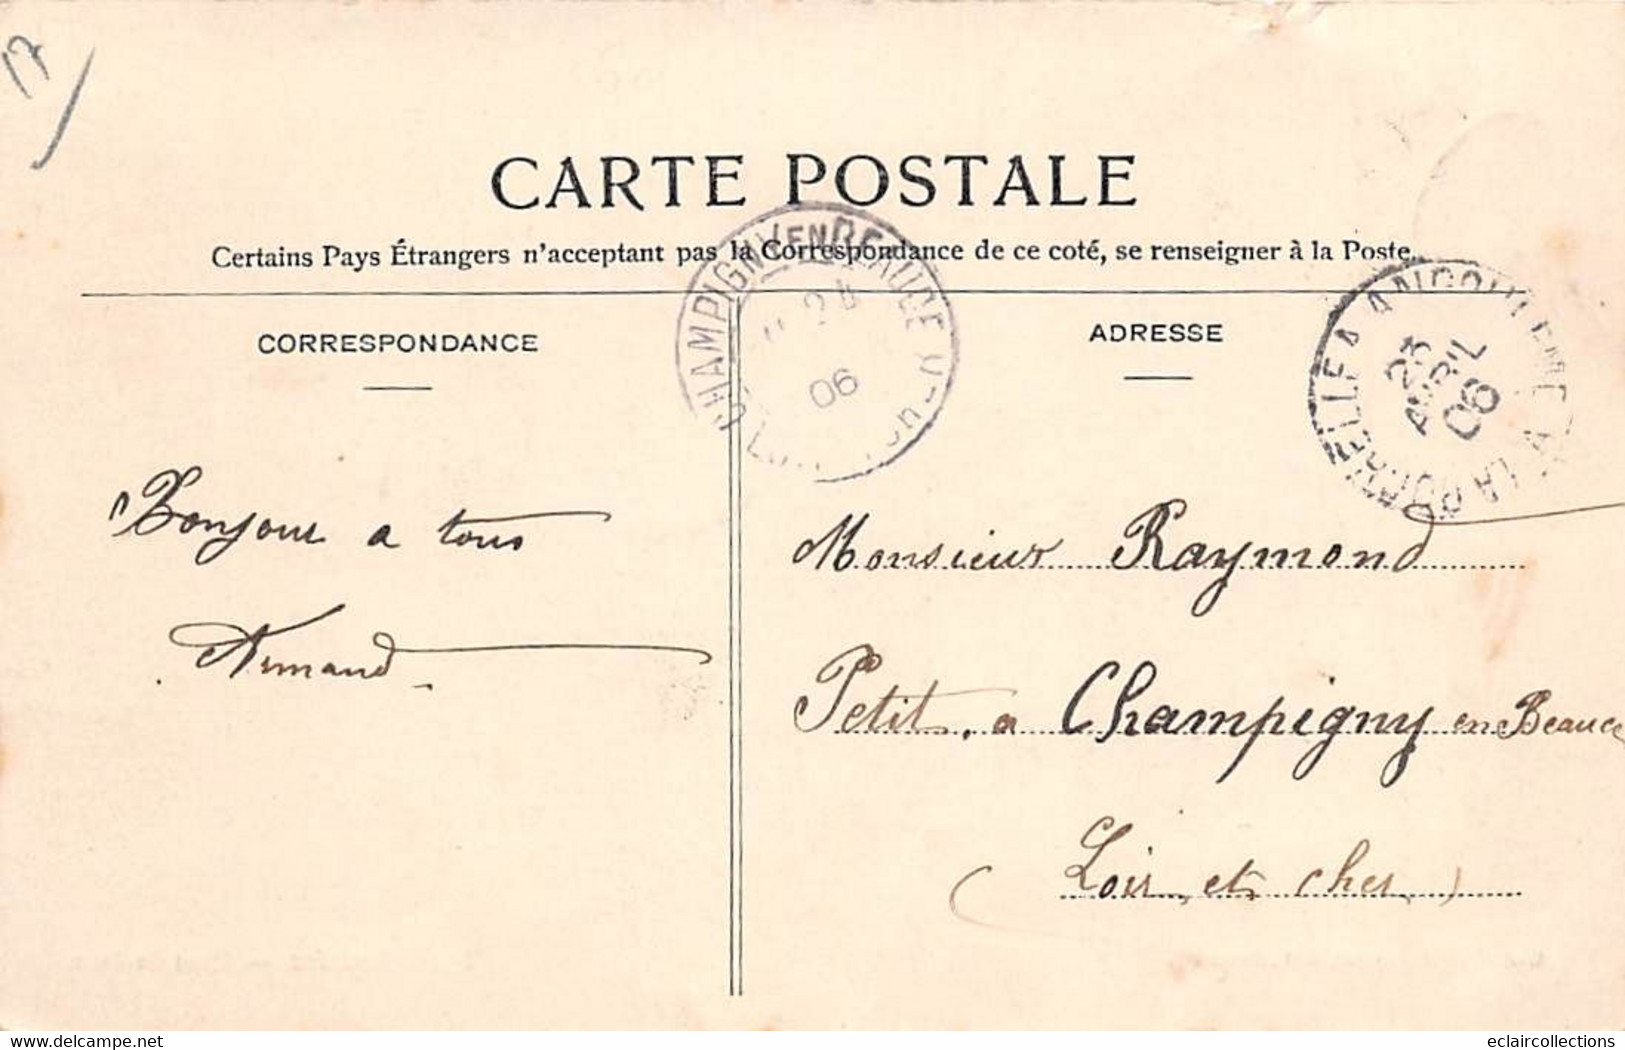 17
CARTE POSTALE
Certains Pays Étrangers n'acceptant pas la Correspondance de ce coté, se renseigner à la Poste.
CORRESPONDANCE
ADRESSE
CHAMPIGNY EN BEAUCE
24
06
LA ROCHELLE A ANGOULEME
23
AVRIL
06
Bonjour a tous
Armand
Monsieur Raymond
Petit, a Champigny en Beauce
(Loir et cher)
eclaircollections